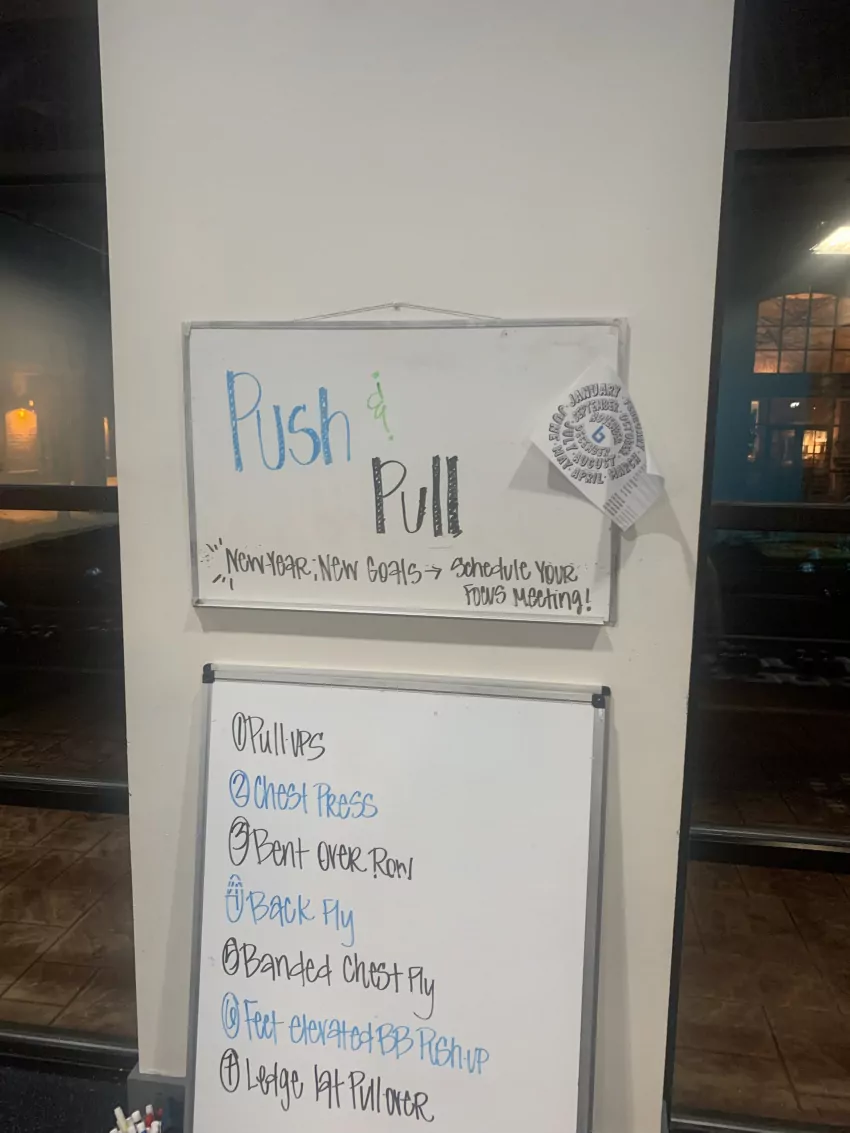 Push &
Pull
New Year, New Goals → Schedule Your
Focus Meeting!
JANUARY · FEBRUARY · MARCH · APRIL · MAY · JUNE · JULY · AUGUST · SEPTEMBER · OCTOBER · NOVEMBER · DECEMBER
① Pull-ups
② Chest Press
③ Bent over Row
④ Back Fly
⑤ Banded Chest Fly
⑥ Feet elevated BB Push-up
⑦ Ledge lat Pull-over